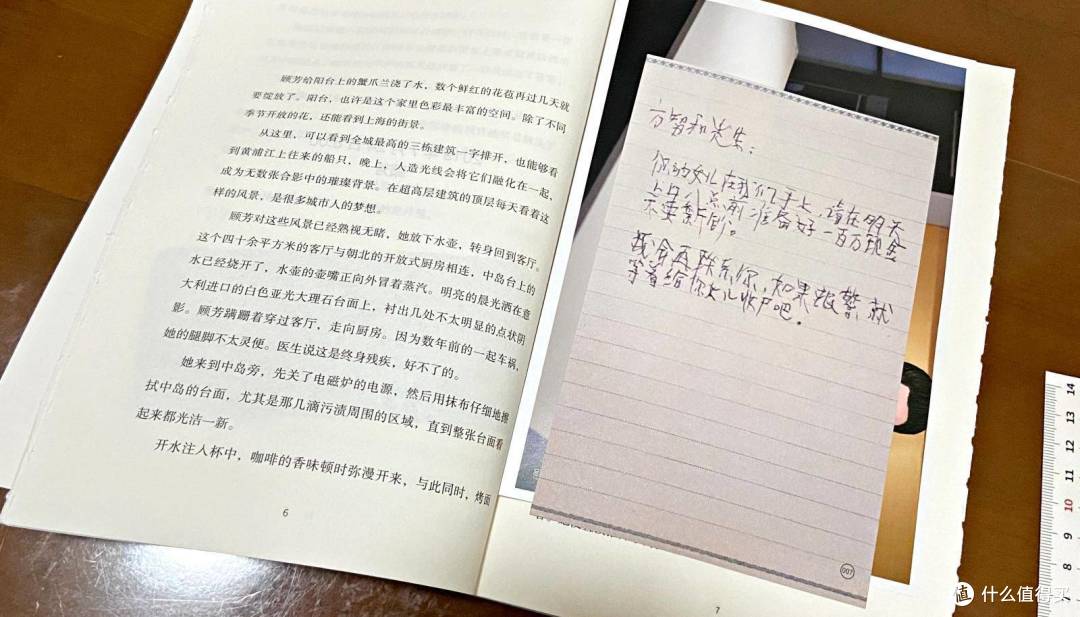 顾芳给阳台上的蟹爪兰浇了水，数个鲜红的花苞再过几天就
要绽放了。阳台，也许是这个家里色彩最丰富的空间。除了不同
季节开放的花，还能看到上海的街景。
从这里，可以看到全城最高的三栋建筑一字排开，也能够看
到黄浦江上往来的船只，晚上，人造光线会将它们融化在一起，
成为无数张合影中的璀璨背景。在超高层建筑的顶层每天看着这
样的风景，是很多城市人的梦想。
顾芳对这些风景已经熟视无睹，她放下水壶，转身回到客厅。
这个四十余平方米的客厅与朝北的开放式厨房相连，中岛台上的
水已经烧开了，水壶的壶嘴正向外冒着蒸汽。明亮的晨光洒在意
大利进口的白色亚光大理石台面上，衬出几处不太明显的点状阴
影。顾芳蹒跚着穿过客厅，走向厨房。因为数年前的一起车祸，
她的腿脚不太灵便。医生说这是终身残疾，好不了的。
她来到中岛旁，先关了电磁炉的电源，然后用抹布仔细地擦
拭中岛的台面，尤其是那几滴污渍周围的区域，直到整张台面看
起来都光洁一新。
开水注入杯中，咖啡的香味顿时弥漫开来，与此同时，烤面
6
方智和先生：
你的女儿在我们手上，请在明天
上午八点前准备好一百万现金
不要报
我会再联系你，如果报警就
等着给你女儿收尸吧。
007
7
14
13
12
11
10
9
8
7
值 什么值得买